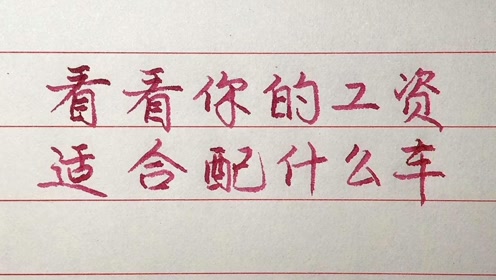 看看你的工资
适合配什么车